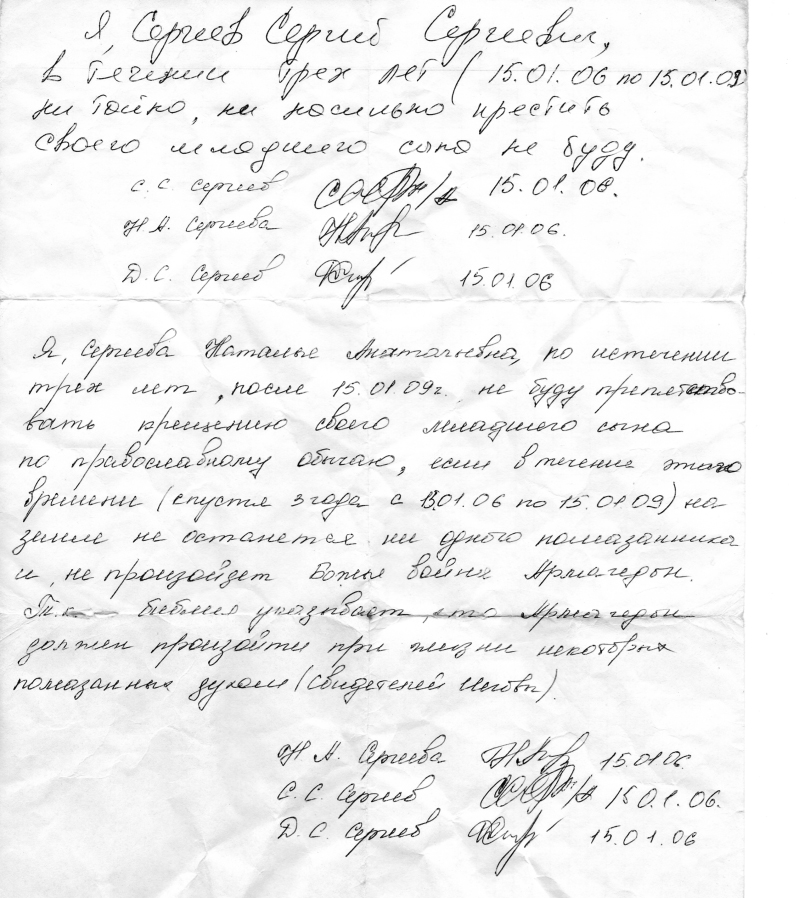 Я, Сергиев Сергей Сергиевич,
в течении трех лет (15.01.06 по 15.01.09)
ни тойно, ни насильно крестить
своего младшего сына не буду.
С. С. Сергиев 15.01.06.
Н А. Сергиева 15.01.06.
Д. С. Сергиев 15.01.06
Я, Сергиева Наталье Анатольевна, по истечении
трех лет, после 15.01.09г. не буду препятство-
вать крещению своего младшего сына
по православному обычаю, если в течение этого
времени (спустя 3 года с 15.01.06 по 15.01.09) на
земле не останется ни одного помазанника
и, не произойдет Божья война Армагедон.
Т.к. библия указывает, что Армагедон
должен произойти при жизни некоторых
помазанных духом (Свидетелей Иеговы).
Н А. Сергиева 15.01.06.
С. С. Сергиев 15.01.06.
Д. С. Сергиев 15.01.06